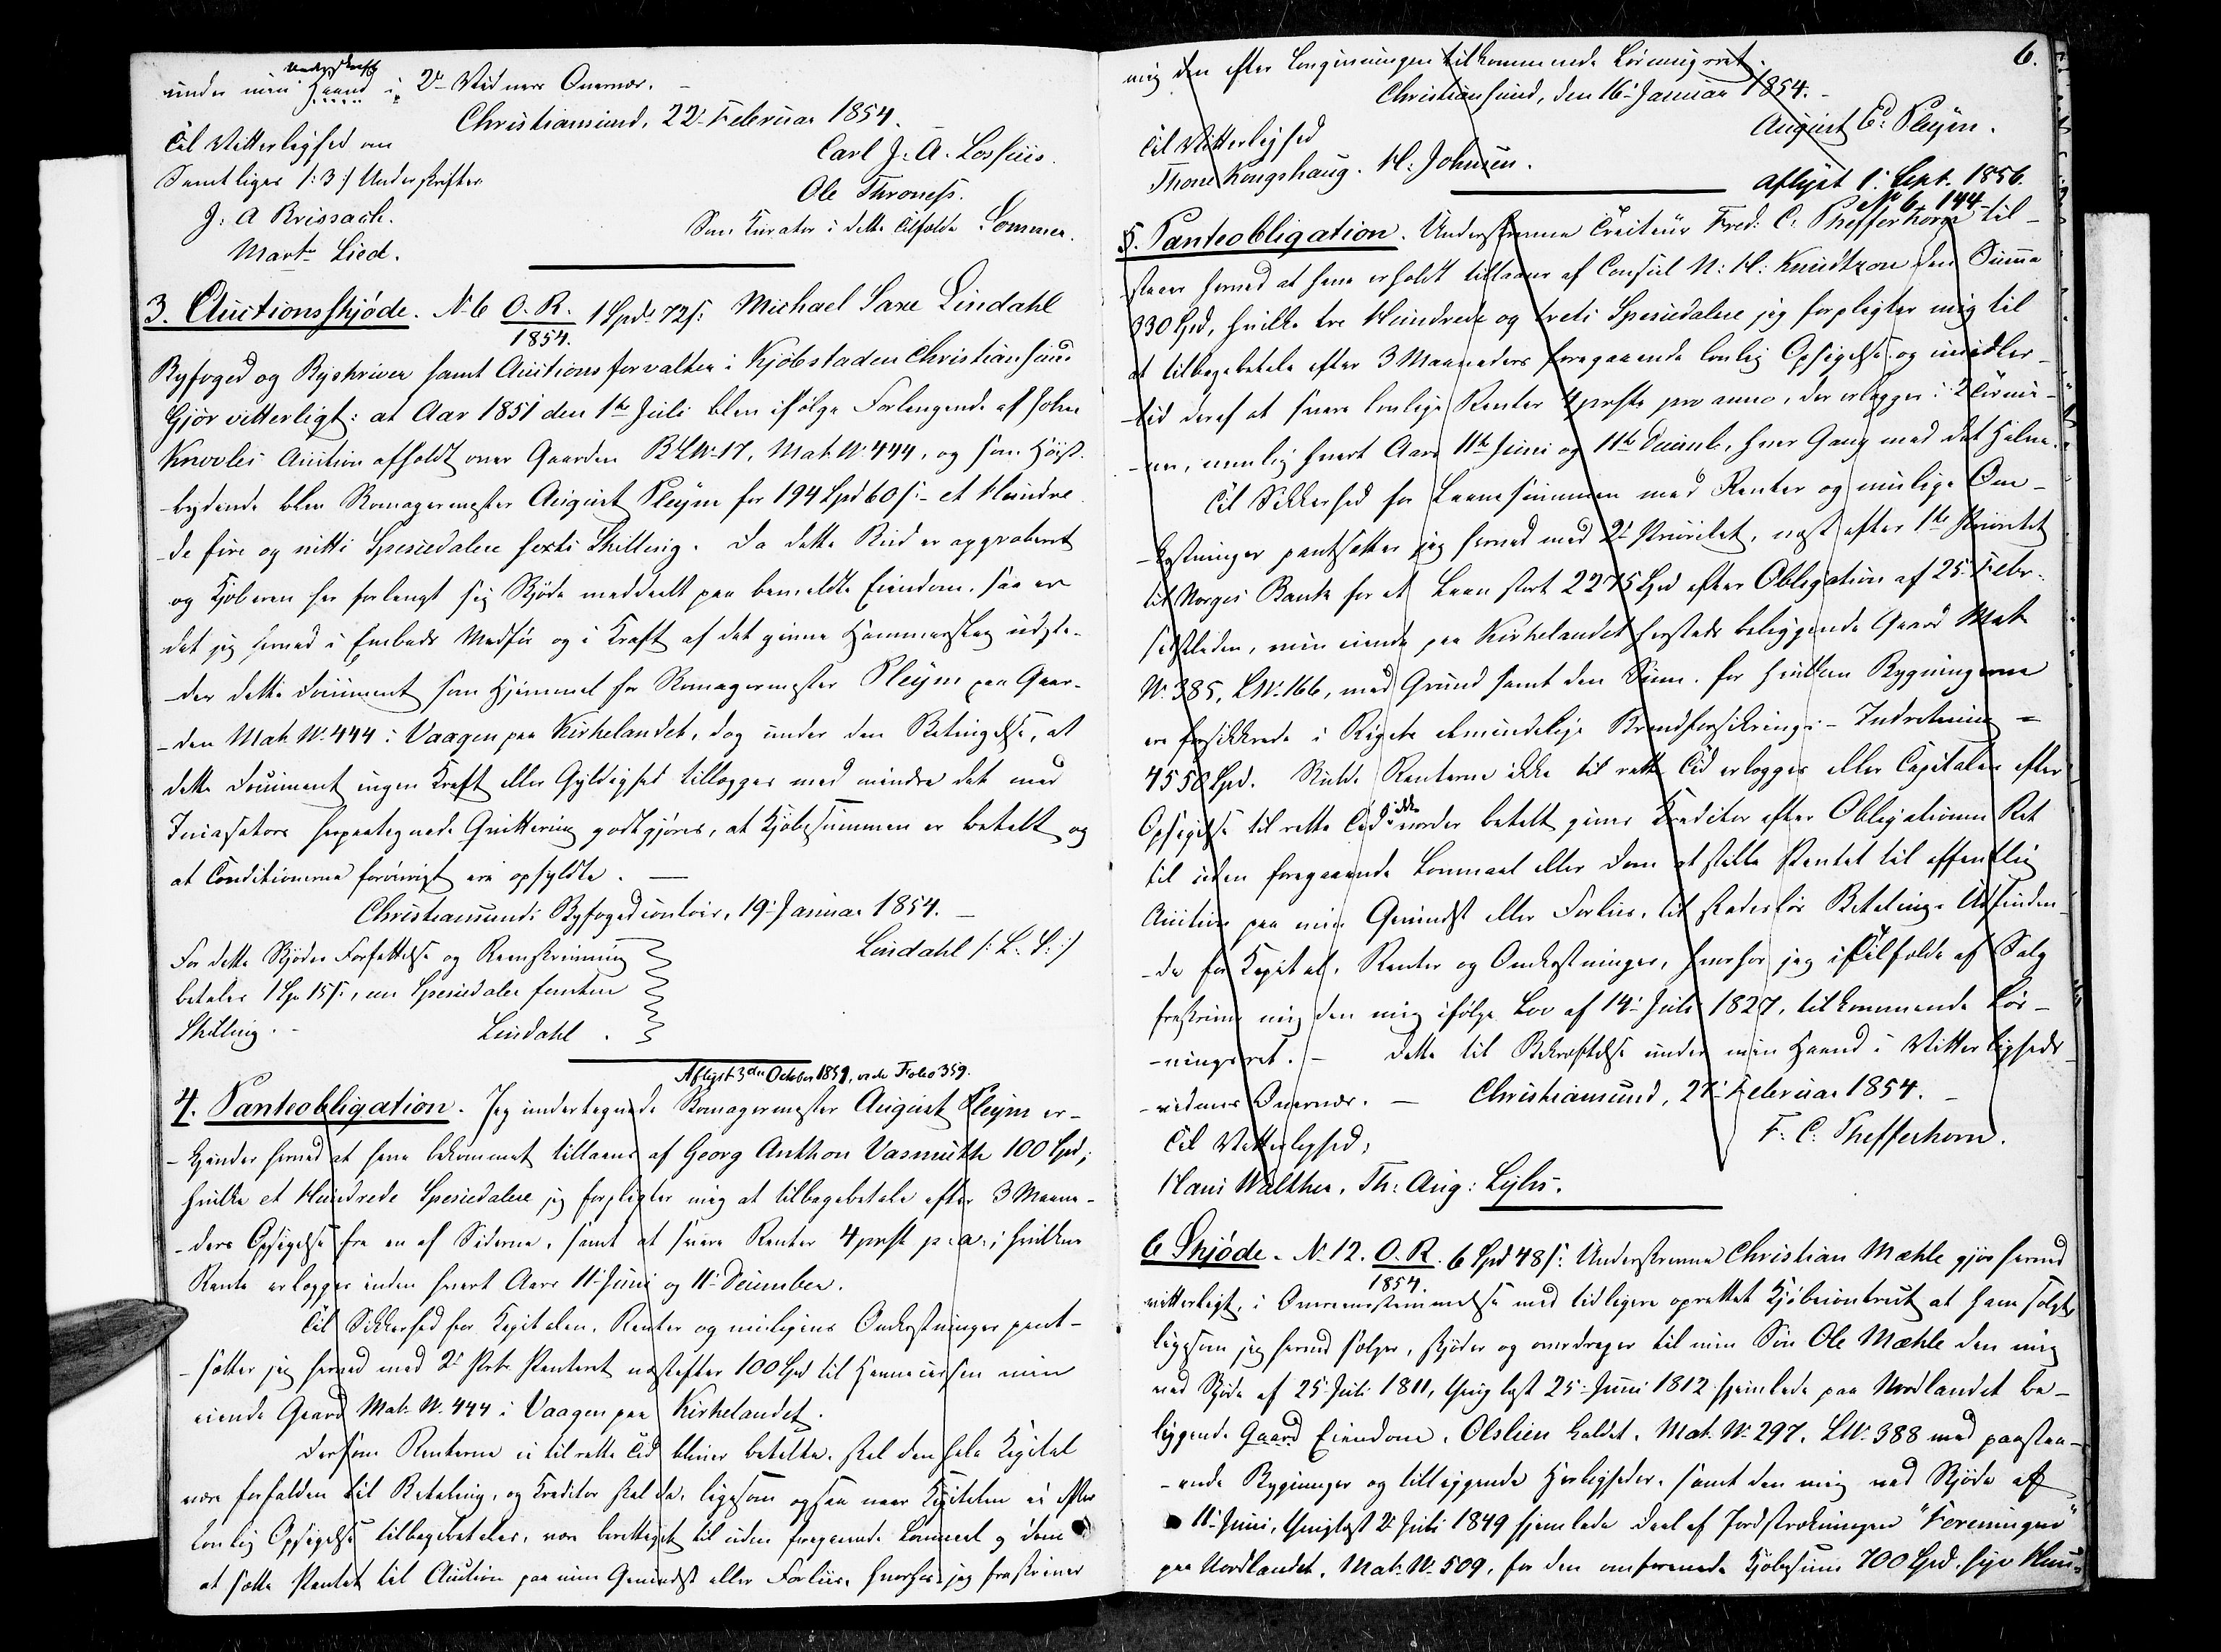 Underskrift
under min Haand i 2de Vidners Overvær. –
Christiansund, 22de Februar 1854.
Til Vitterlighed om
Carl J. A. Lossius.
Samtliges /: 3 :/ Underskrifter
Ole Throness.
J. A Brissach.
Som Curator i dette Tilfælde Sommer.
Mart. Lied.
3. Auctionsskjøde. No 6 O. R. 1854. 1 Spd. 72 s. Michael Saxe Lindahl
Byfoged og Byskriver samt Auctionsforvalter i Kjøbstaden Christiansund
Gjør vitterligt: at Aar 1851 den 1te Juli blev ifølge Forlangende af John
Knovles Auction afholdt over Gaarden B L No 17, Mat. No 444, og som Høist-
-bydende blev Bomagermester August Pleym for 194 Spd 60 s. – et Hundre
-de fire og nitti Speciedalere sexti Skilling. Da dette Bud er approberet
og Kjøberen har forlangt sig Skjøde meddeelt paa bemeldte Eiendom, saa er
det jeg herved i Embeds Medfør og i Kraft af det givne Hammerslag udste-
-der dette Document som Hjemmel for Bomagermester Pleym paa Gaar-
-den Mat. No 444 i Vaagen paa Kirkelandet, dog under den Betingelse, at
dette Document ingen Kraft eller Gyldighed tillægges med mindre det med
Incasators herpaategnede Qvittering godtgjøres, at Kjøbesummen er betalt og
at Conditionerne forøvrigt ere opfyldte. –
Christiansunds Byfogedcontoir, 19de Januar 1854. –
For dette Skjødes Forfattelse og Reenskrivning
Lindahl /: L. S. :/
betales 1 Sp. 15 s., een Speciedaler femten
Skilling. – Lindahl.
Aflyst 3die October 1859, vide Folio 359.
4. Panteobligation. Jeg undertegnede Bomagermester August Pleym er-
-kjender herved at have bekommet tillaans af Georg Anthon Vasmuth 100 Spd,
hvilke et Hundrede Speciedalere jeg forpligter mig at tilbagebetale efter 3 Maane-
-ders Opsigelse fra en af Siderne, samt at svare Renter 4 prosto p. a., hvilken
Rente erlægges inden hvert Aars 11te Juni og 11te December.
Til Sikkerhed for Kapitalen, Renter og muligens Omkostninger pant-
-sætter jeg herved med 2den Prts Panteret næstefter 100 Spd til min
eiende Gaard Mat. No 444 i Vaagen paa Kirkelandet.
Dersom Renterne ei til rette Tid bliver betalte, skal den hele Kapital
være forfalden til Betaling, og Kreditor skal da, ligesom ogsaa naar Kapitalen ei efter
lovlig Opsigelse tilbagebetales, være berettiget til uden foregaaende Lovmaal og Dom
at sætte Pantet til Auction paa min Gevindst eller Forliis, hvorhos jeg fraskriver
6.
mig den efter Lovgivningen tilkommende Løsningsret.
Christiansund, den 16de Januar 1854. –
Til Vitterlighed
August Ed. Pleym.
Thore Kongshaug. H. Johnsen.
Aflyst 1. Sept. 1856.
No 6 – 144
5. Panteobligation. Underskrevne Traiteur Fred. C. Phefferkorn til-
-staaer herved at have erholdt tillaans af Consul N. H. Knudtzon den Summa
330 Spd, hvilke tre Hundrede og treti Speciedalere jeg forpligter mig til
at tilbagebetale efter 3 Maaneders foregaaende lovlig Opsigelse og imidler-
-tid deraf at svare lovlige Renter 4 prosto pro anno, der erlægges i 2 Termi-
-ner, nemlig hvert Aars 11te Juni og 11te Decemb., hver Gang med det Halve.
Til Sikkerhed for Laanesummen med Renter og mulige Om-
-kostninger pantsætter jeg herved med 2den Prioritet, næst efter 1ste Prioritet
til Norges Bank for et Laan stort 2275 Spd efter Obligation af 25. Febr.
sidstleden, min eiende paa Kirkelandet hersteds beliggende Gaard Mat.
No 385, LNo 166, med Grund samt den Sum, for hvilken Bygningerne
ere forsikkrede i Rigets almindelige Brandforsikrings-Indretning =
4550 Spd. Skulde Renterne ikke til rette Tid erlægges eller Capitalen efter
Opsigelse til rette Tid ikke vorder betalt giver Kreditor efter Obligationen Ret
til uden foregaaende Lovmaal eller Dom at stille Pantet til offentlig
Auction paa min Gevindst eller Forliis, til skadesløs Betaling. Udfinden-
-de for Kapital, Renter og Omkostninger, hvorhos jeg i Tilfælde af Salg
fraskriver mig den mig ifølge Lov af 14de Juli 1827, tilkommende Løs-
-ningsret. – Dette til Bekræftelse under min Haand i Vitterligheds-
-vidners Overvær. – Christiansund, 27de Februar 1854. –
Til Vitterlighed,
F. C. Phefferkorn.
Hans Walther. Th. Aug. Lyhs.
6 Skjøde. No 12. O. R. 1854. 6 Spd 48 s. Underskrevne Christian Mæhle gjør herved
vitterligt, i Overeensstemmelse med tidligere oprettet Kjøbecontract at have solgt
ligesom jeg herved sælger, skjøder og overdrager til min Søn Ole Mæhle den mig
ved Skjøde af 25de Juli 1811, thinglæst 25de Juni 1812 hjemlede paa Nordlandet be-
liggende Gaard Eiendom, Olslien kaldet, Mat. No 297, LNo 388 med paastaa-
-ende Bygninger og tilliggende Herligheder, samt den mig ved Skjøde af
11te Juni, thinglæst 2de Juli 1849 hjemlede Deel af Jordstrækningen "Foreningen"
paa Nordlandet, Mat. No 509, for den omforenede Kjøbesum 700 Spd. syv Hun-